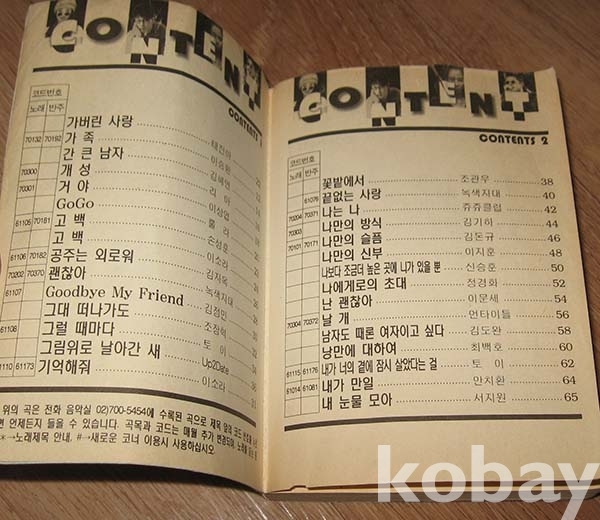 CONTENT
CONTENTS
코드번호
노래 반주
가버린 사랑
70132 70192 가 족 이승환
간 큰 남자 김혜연
70300 개 성
70301 거 야 이상엽
GoGo 룰 라
61105 70181 고 백 손성호
고 백 이소라
61106 70182 공주는 외로워 김자옥
70202 70370 괜찮아 녹색지대
61107 Goodbye My Friend 김정민
그대 떠나가도 조장혁
61108 그럴 때마다 토 이
그림위로 날아간 새 Up2Date
61173 기억해줘 이소라
위의 곡은 전화 음악실 02)700-5454에 수록된 곡으로 제목 옆의 코드 번호를
면 언제든지 들을 수 있습니다. 곡목과 코드는 매월 추가 변경되며, 노래를
*→노래제목 안내, #→새로운 코너 이용시 사용하십시오
CONTENT
CONTENTS 2
코드번호
노래 반주
꽃밭에서 조관우 38
61076 끝없는 사랑 녹색지대 40
70204 70371 나는 나 쥬쥬클럽 42
70303 나만의 방식 김기하 44
70101 70171 나만의 슬픔 김돈규 46
나만의 신부 이지훈 48
나보다 조금더 높은 곳에 니가 있을 뿐 신승훈 50
나에게로의 초대 정경화 52
난 괜찮아 이문세 54
70304 70372 날 개 언타이틀 56
남자도 때론 여자이고 싶다 김도완 58
낭만에 대하여 최백호 60
61115 61176 내가 너의 곁에 잠시 살았다는 걸 토 이 62
61014 61081 내가 만일 안치환 64
내 눈물 모아 서지원 65
kobay